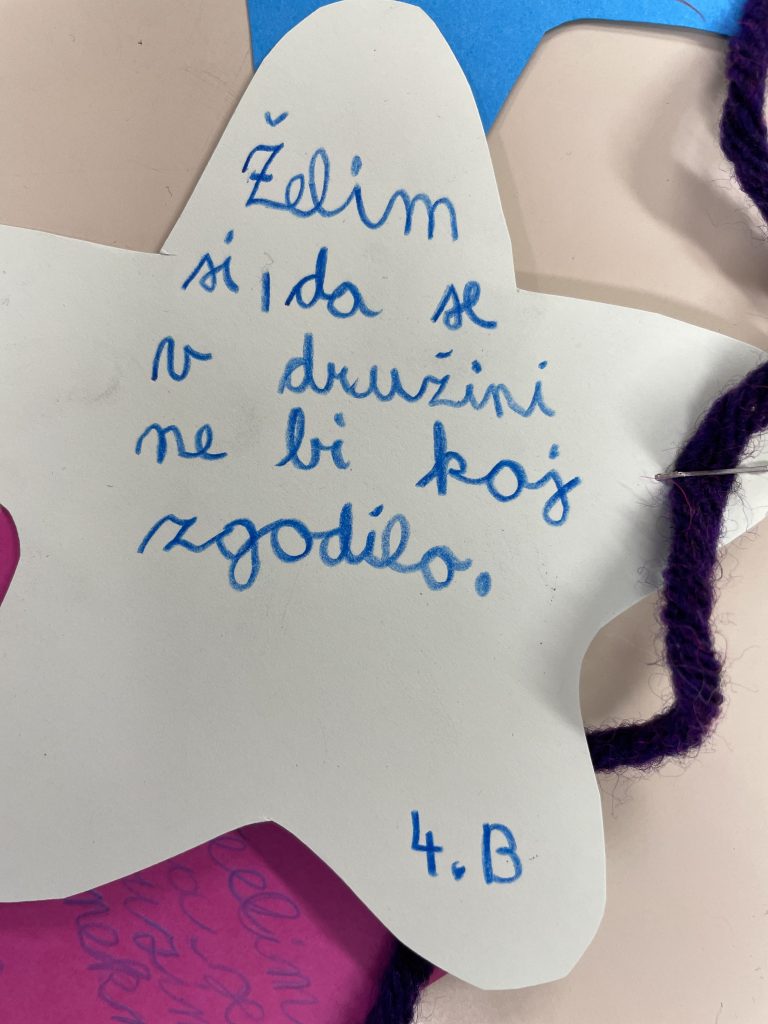 Želim
si, da se
v družini
ne bi koj
zgodilo.
4.B